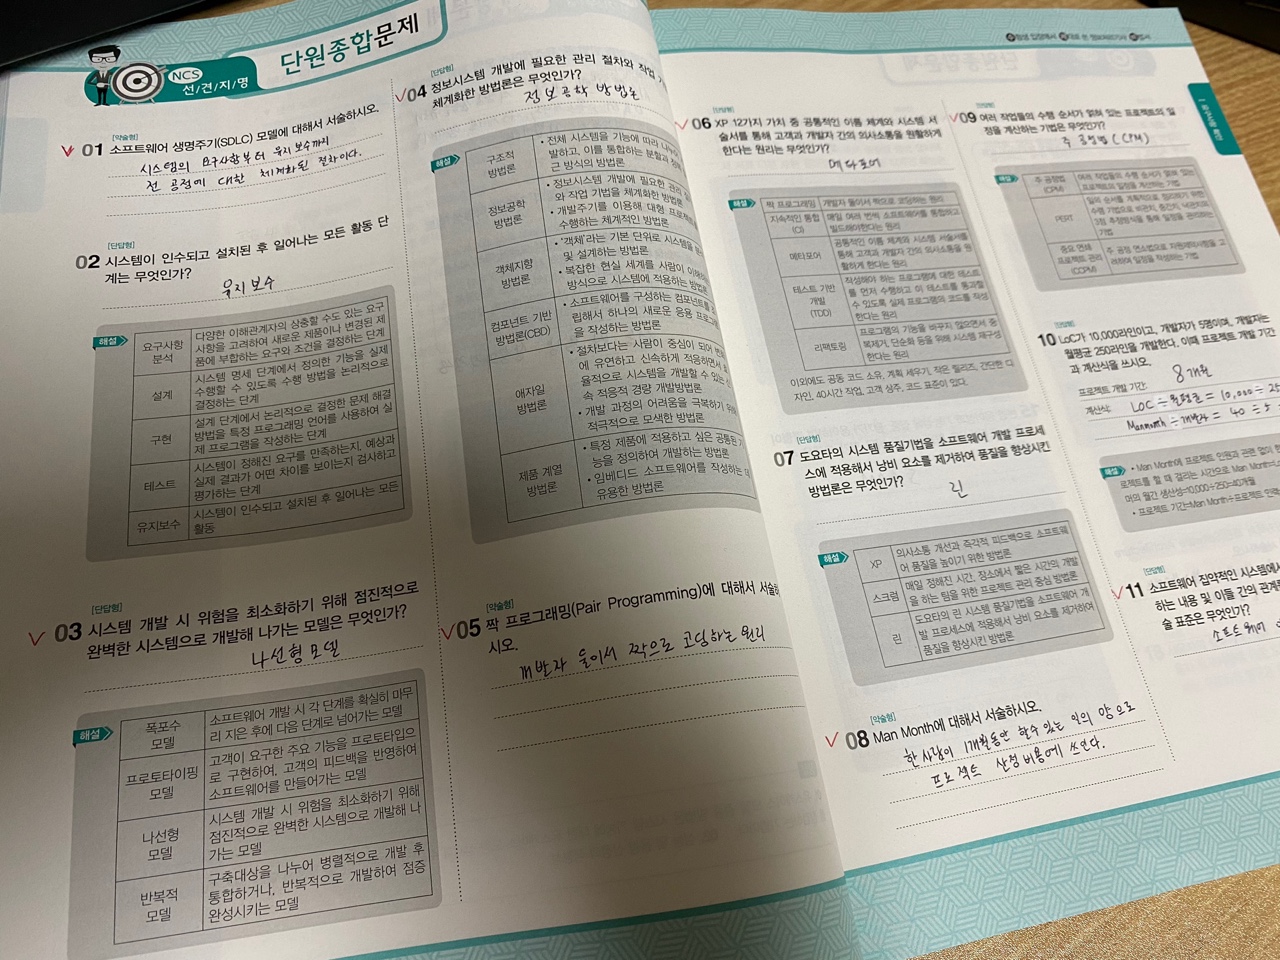 NCS
선/견/지/명
단원종합문제
[약술형]
01 소프트웨어 생명주기(SDLC) 모델에 대해서 서술하시오.
시스템의 요구사항부터 유지보수까지
전 공정에 대한 체계화된 절차이다.
[단답형]
02 시스템이 인수되고 설치된 후 일어나는 모든 활동 단
계는 무엇인가?
유지보수
해설
요구사항
분석
다양한 이해관계자의 상충할 수도 있는 요구
사항을 고려하여 새로운 제품이나 변경된 제
품에 부합하는 요구와 조건을 결정하는 단계
설계
시스템 명세 단계에서 정의한 기능을 실제
수행할 수 있도록 수행 방법을 논리적으로
결정하는 단계
구현
설계 단계에서 논리적으로 결정한 문제 해결
방법을 특정 프로그래밍 언어를 사용하여 실
제 프로그램을 작성하는 단계
테스트
시스템이 정해진 요구를 만족하는지, 예상과
실제 결과가 어떤 차이를 보이는지 검사하고
평가하는 단계
유지보수
시스템이 인수되고 설치된 후 일어나는 모든
활동
[단답형]
03 시스템 개발 시 위험을 최소화하기 위해 점진적으로
완벽한 시스템으로 개발해 나가는 모델은 무엇인가?
나선형 모델
해설
폭포수
모델
소프트웨어 개발 시 각 단계를 확실히 마무
리 지은 후에 다음 단계로 넘어가는 모델
프로토타이핑
모델
고객이 요구한 주요 기능을 프로토타입으
로 구현하여, 고객의 피드백을 반영하여
소프트웨어를 만들어가는 모델
나선형
모델
시스템 개발 시 위험을 최소화하기 위해
점진적으로 완벽한 시스템으로 개발해 나
가는 모델
반복적
모델
구축대상을 나누어 병렬적으로 개발 후
통합하거나, 반복적으로 개발하여 점증
완성시키는 모델
[단답형]
04 정보시스템 개발에 필요한 관리 절차와 작업
체계화한 방법론은 무엇인가?
정보공학 방법론
해설
구조적
방법론
• 전체 시스템을 기능에 따라
발하고, 이를 통합하는 분할과
근 방식의 방법론
정보공학
방법론
• 정보시스템 개발에 필요한 관리
와 작업 기법을 체계화한 방법론
• 개발주기를 이용해 대형 프로젝트
수행하는 체계적인 방법론
객체지향
방법론
• '객체'라는 기본 단위로 시스템을
및 설계하는 방법론
• 복잡한 현실 세계를 사람이
방식으로 시스템에 적용하는 방법론
컴포넌트 기반
방법론(CBD)
• 소프트웨어를 구성하는 컴포넌트를
립해서 하나의 새로운 응용
을 작성하는 방법론
애자일
방법론
• 절차보다는 사람이 중심이 되어
에 유연하고 신속하게 적응하면서
율적으로 시스템을 개발할 수 있는
속 적응적 경량 개발방법론
• 개발 과정의 어려움을 극복하기
적극적으로 모색한 방법론
제품 계열
방법론
• 특정 제품에 적용하고 싶은 공통된
능을 정의하여 개발하는 방법론
• 임베디드 소프트웨어를 작성하는 데
유용한 방법론
[약술형]
05 짝 프로그래밍(Pair Programming)에 대해서 서술하
시오.
개발자 둘이서 짝으로 코딩하는 원리
[단답형]
06 XP 12가지 가치 중 공통적인 이름 체계와 시스템 서
술서를 통해 고객과 개발자 간의 의사소통을 원활하게
한다는 원리는 무엇인가?
메타포어
해설
짝 프로그래밍
개발자 둘이서 짝으로 코딩하는 원리
지속적인 통합
(CI)
매일 여러 번씩 소프트웨어를 통합하고
빌드해야한다는 원리
메타포어
공통적인 이름 체계와 시스템 서술서를 통
해 고객과 개발자 간의 의사소통을 원
활하게 한다는 원리
테스트 기반
개발
(TDD)
작성해야 하는 프로그램에 대한 테스트
를 먼저 수행하고 이 테스트를 통과할
수 있도록 실제 프로그램의 코드를 작성
한다는 원리
리팩토링
프로그램의 기능을 바꾸지 않으면서 중
복제거, 단순화 등을 위해 시스템 재구성
한다는 원리
이외에도 공동 코드 소유, 계획 세우기, 작은 릴리즈, 간단한 디
자인, 40시간 작업, 고객 상주, 코드 표준이 있다.
[단답형]
07 도요타의 시스템 품질기법을 소프트웨어 개발 프로세
스에 적용해서 낭비 요소를 제거하여 품질을 향상시킨
방법론은 무엇인가?
린
해설
XP
의사소통 개선과 즉각적 피드백으로 소프트웨
어 품질을 높이기 위한 방법론
스크럼
매일 정해진 시간, 장소에서 짧은 시간의 개발
을 하는 팀을 위한 프로젝트 관리 중심 방법론
린
도요타의 린 시스템 품질기법을 소프트웨어 개
발 프로세스에 적용해서 낭비 요소를 제거하여
품질을 향상시킨 방법론
[약술형]
08 Man Month에 대해서 서술하시오.
한 사람이 1개월동안 할수 있는 일의 양으로
프로젝트 산정비용에 쓰인다.
[단답형]
09 여러 작업들의 수행 순서가 얽혀 있는 프로젝트의 일
정을 계산하는 기법은 무엇인가?
주 공정법 (CPM)
해설
주 공정법
(CPM)
여러 작업들의 수행 순서가 얽혀 있는
프로젝트의 일정을 계산하는 기법
PERT
일의 순서를 계획적으로 정리하기 위한
기법
중요 연쇄
프로젝트 관리
(CCPM)
주 공정 연쇄법으로 자원제약사항을 고
려하여 일정을 작성하는 기법
[단답형]
10 LoC가 10,000라인이고, 개발자가 5명이며, 개발자는
월평균 250라인을 개발한다. 이때 프로젝트 개발 기간
과 계산식을 쓰시오.
프로젝트 개발 기간: 8개월
계산식:
= 10,000 ÷ 25
Manmonth ÷ 개발자 = 40 ÷ 5
해설
• Man Month에 프로젝트 인원과 관련 없이 한
로젝트를 할 때 걸리는 시간으로 Man Month=
머의 월간 생산성=10,000÷250=40개월
• 프로젝트 기간=Man Month÷프로젝트 인력
[단답형]
11 소프트웨어 집약적인 시스템에서
하는 내용 및 이들 간의 관계
술 표준은 무엇인가?
소프트웨어